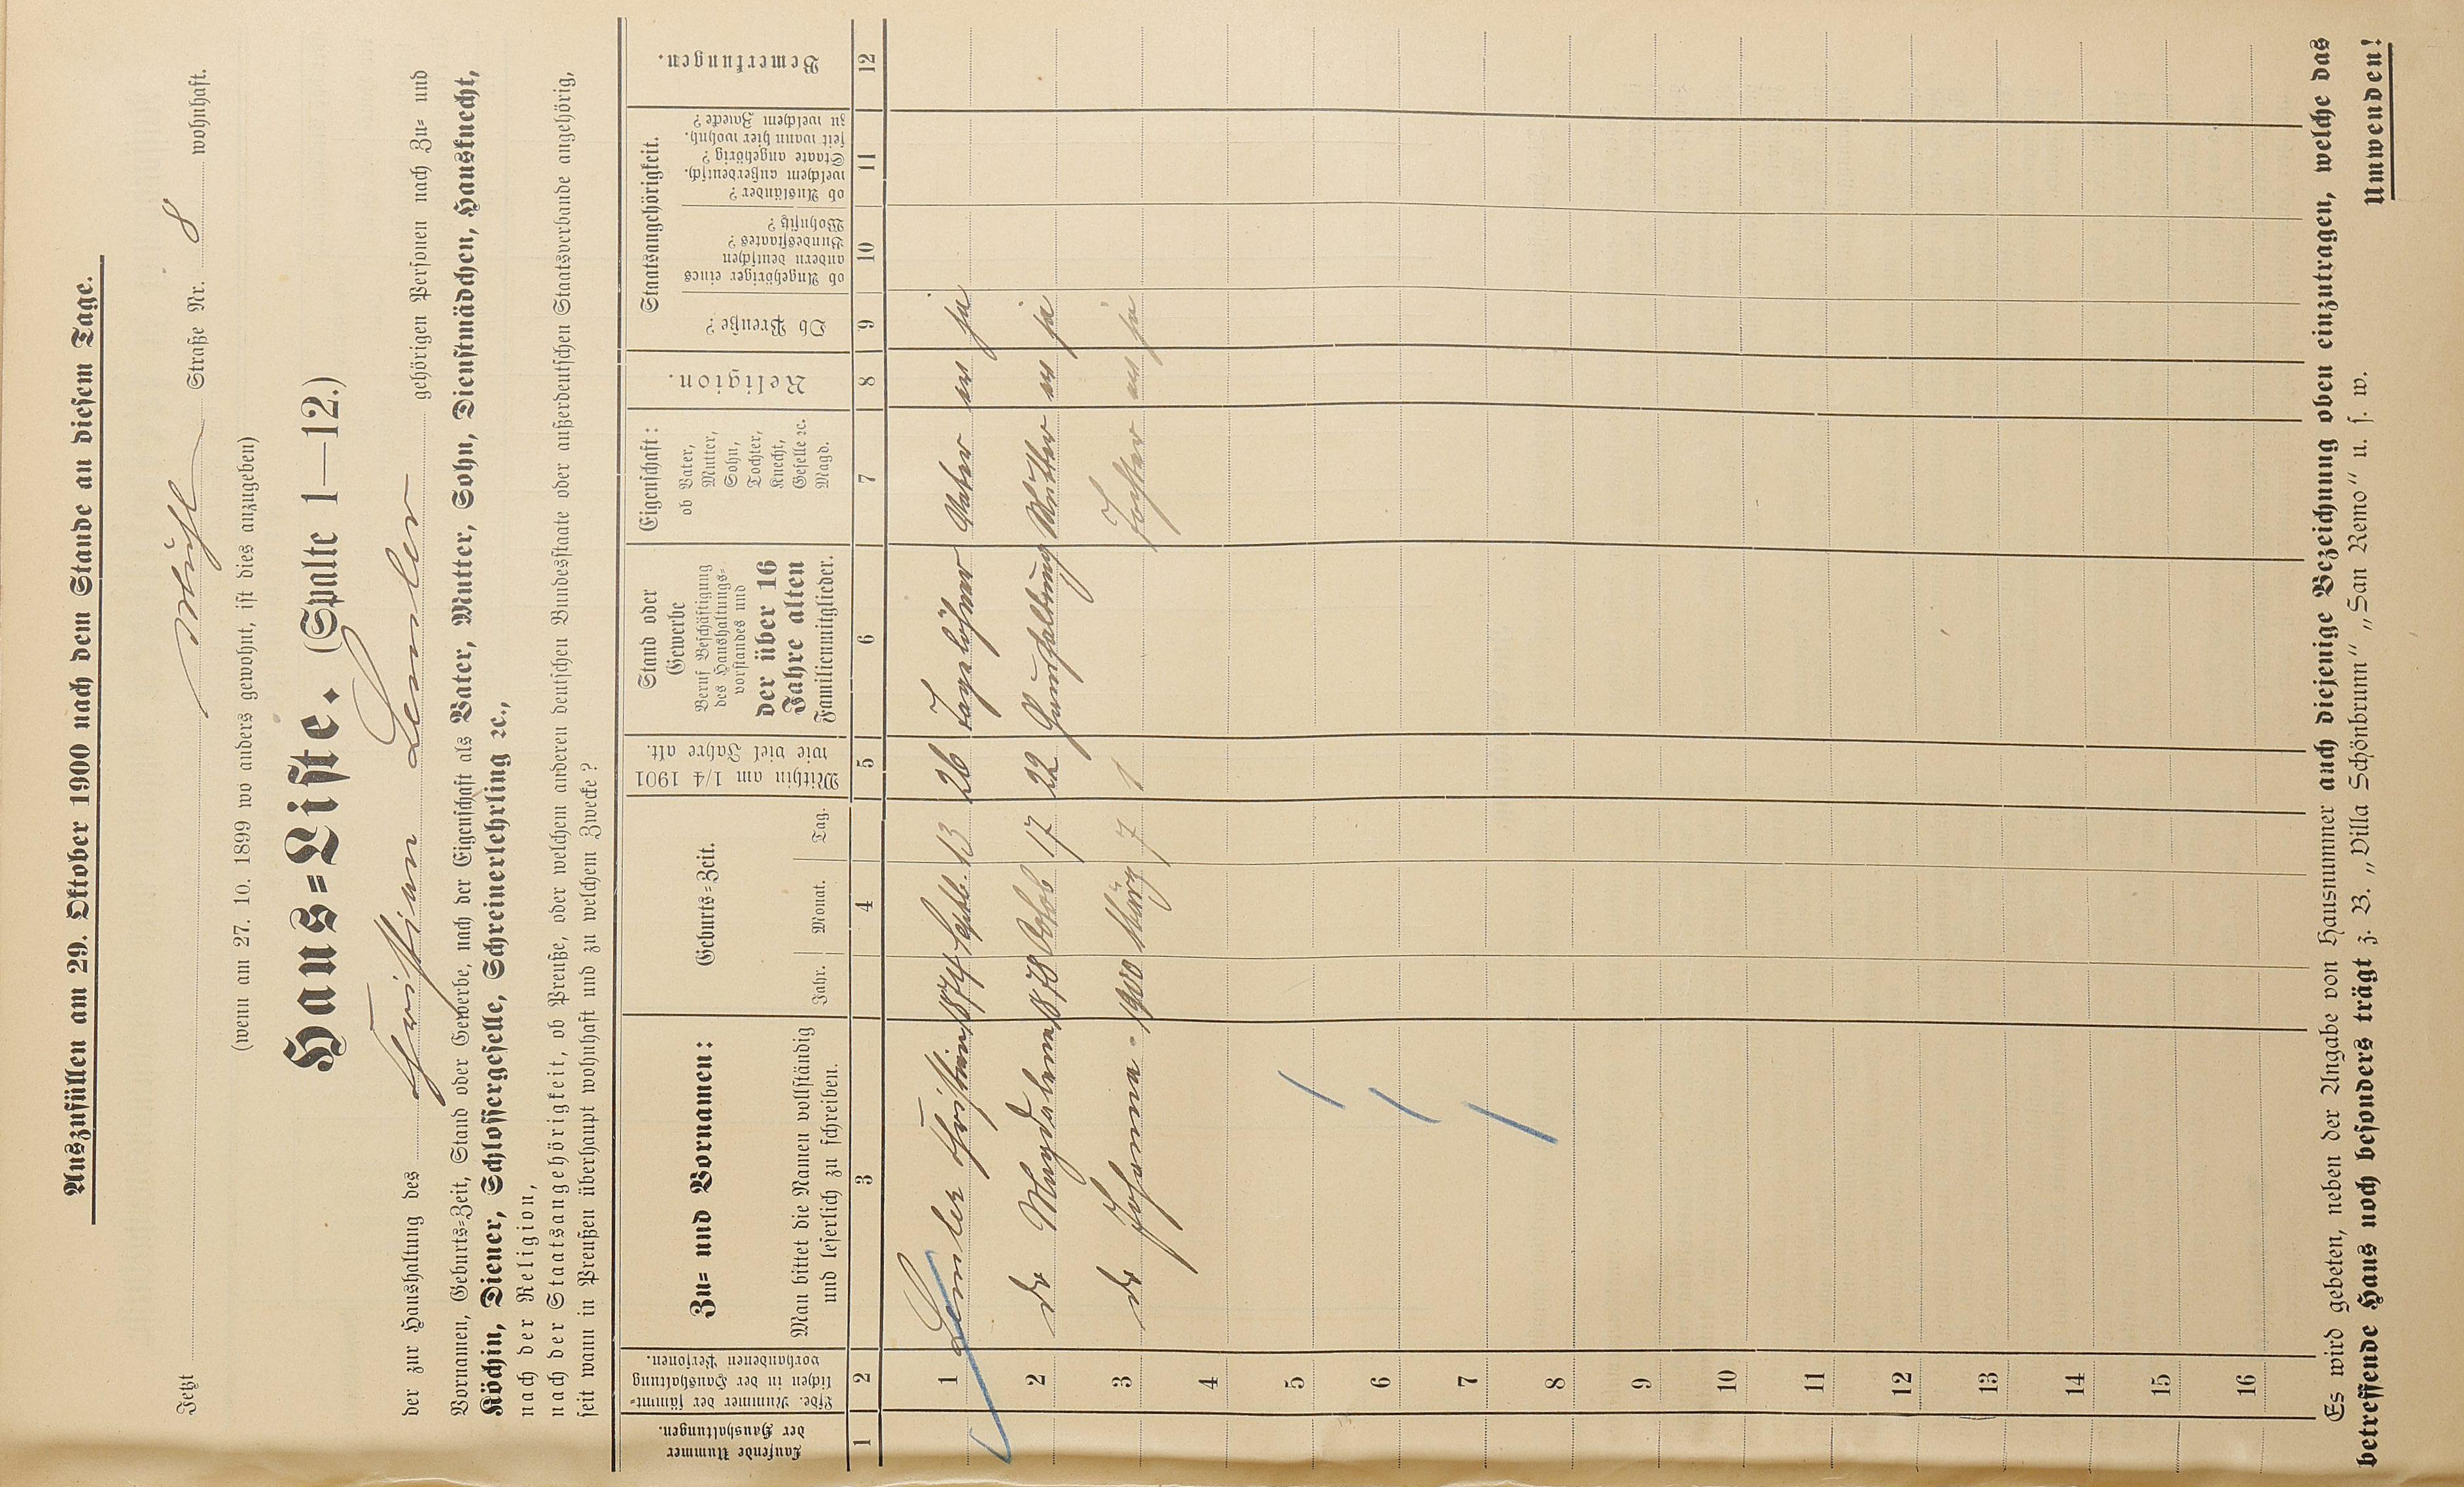 Auszufüllen am 29. Oktober 1900 nach dem Stande an diesem Tage.
Jetzt Mühl Straße Nr. 8 wohnhaft.
(wenn am 27. 10. 1899 wo anders gewohnt, ist dies anzugeben)
Haus=Liste. (Spalte 1—12.)
der zur Haushaltung des Christian Lemler gehörigen Personen nach Zu= und
Vornamen, Geburts=Zeit, Stand oder Gewerbe, nach der Eigenschaft als Vater, Mutter, Sohn, Dienstmädchen, Hausknecht,
Köchin, Diener, Schlossergeselle, Schreinerlehrling ꝛc.,
nach der Religion,
nach der Staatsangehörigkeit, ob Preuße, oder welchem anderen deutschen Bundesstaate oder außerdeutschen Staatsverbande angehörig,
seit wann in Preußen überhaupt wohnhaft und zu welchem Zwecke?
Laufende Nummer
der Haushaltungen.
Lfde. Nummer der sämmt=
lichen in der Haushaltung
vorhandenen Personen.
Zu= und Vornamen:
Man bittet die Namen vollständig
und leserlich zu schreiben.
Geburts=Zeit.
Jahr. Monat. Tag.
Mithin am 1/4 1901
wie viel Jahre alt.
Stand oder
Gewerbe
Beruf Beschäftigung
des Haushaltungs=
vorstandes und
der über 16
Jahre alten
Familienmitglieder.
Eigenschaft:
ob Vater,
Mutter,
Sohn,
Tochter,
Knecht,
Geselle ꝛc.
Magd.
Religion.
Staatsangehörigkeit.
Ob Preuße?
ob Angehöriger eines
andern deutschen
Bundesstaates?
Wohnsitz?
ob Ausländer?
welchem außerdeutsch.
Staate angehörig?
seit wann hier wohnh.
zu welchem Zwecke?
Bemerkungen.
1 2 3 4 5 6 7 8 9 10 11 12
1 Lemler Christian 1874 Septb. 13 26 Tagelöhner Vater ev ja
2 do Magdalena 1878 Oktb 17 22 Haushaltung Mutter ev ja
3 do Johanna 1900 März 7 1 Tochter ev ja
4
5
6
7
8
9
10
11
12
13
14
15
16
Es wird gebeten, neben der Angabe von Hausnummer auch diejenige Bezeichnung oben einzutragen, welche das
betreffende Haus noch besonders trägt z. B. „Villa Schönbrunn" „San Remo" u. s. w.
Umwenden!